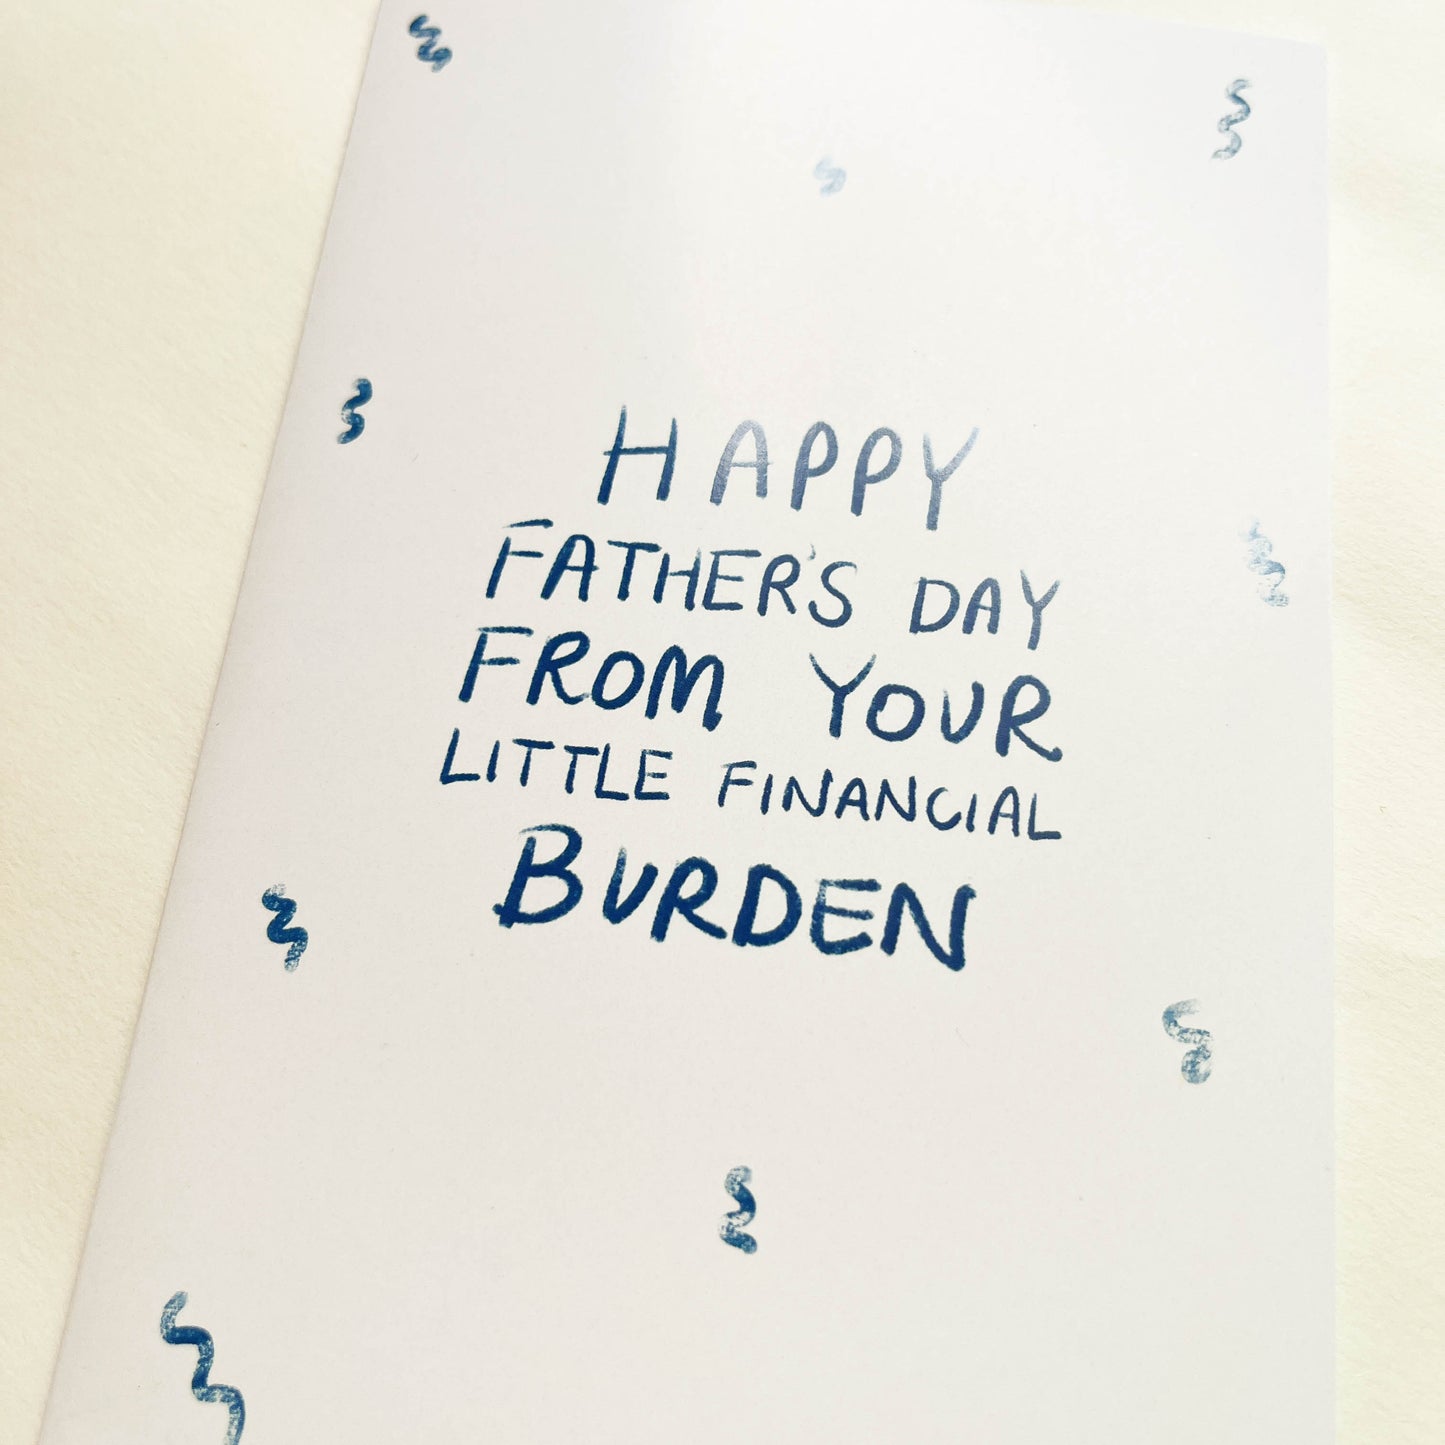 HAPPY
FATHER'S DAY
FROM YOUR
LITTLE FINANCIAL
BURDEN